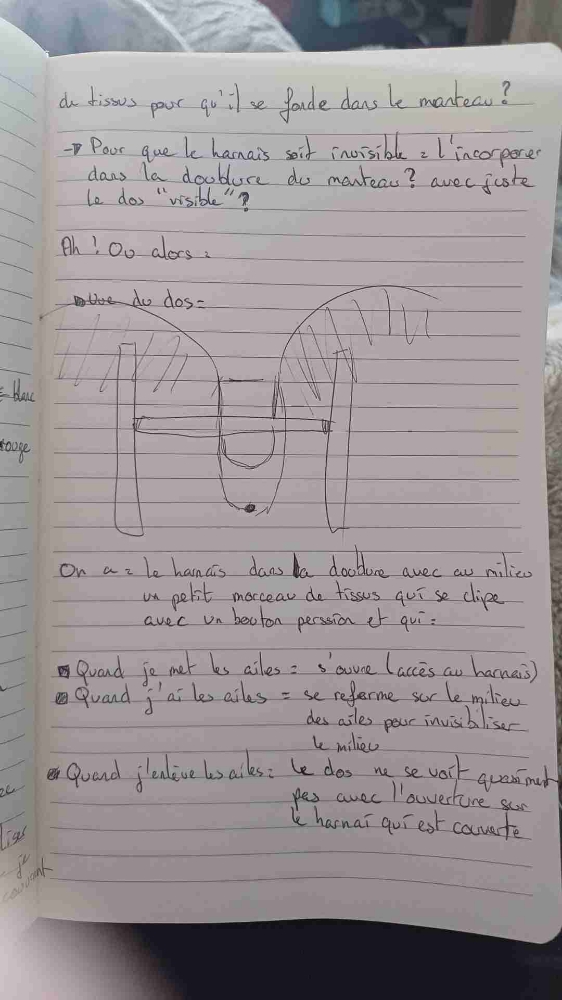 de tissus pour qu'il se fonde dans le manteau ?
→ Pour que le harnais soit invisible = l'incorporer
dans la doublure du manteau ? avec juste
le dos "visible" ?
Ah ! Ou alors :
Vue du dos =
blanc
rouge
On a = le harnais dans la doublure avec au milieu
un petit morceau de tissus qui se clipe
avec un bouton perssion et qui =
Quand je met les ailes = s'ouvre (accès au harnais)
Quand j'ai les ailes = se referme sur le milieu
des ailes pour invisibiliser
le milieu
Quand j'enlève les ailes = le dos ne se voit quasiment
pas avec l'ouverture sur
le harnai qui est couverte
je